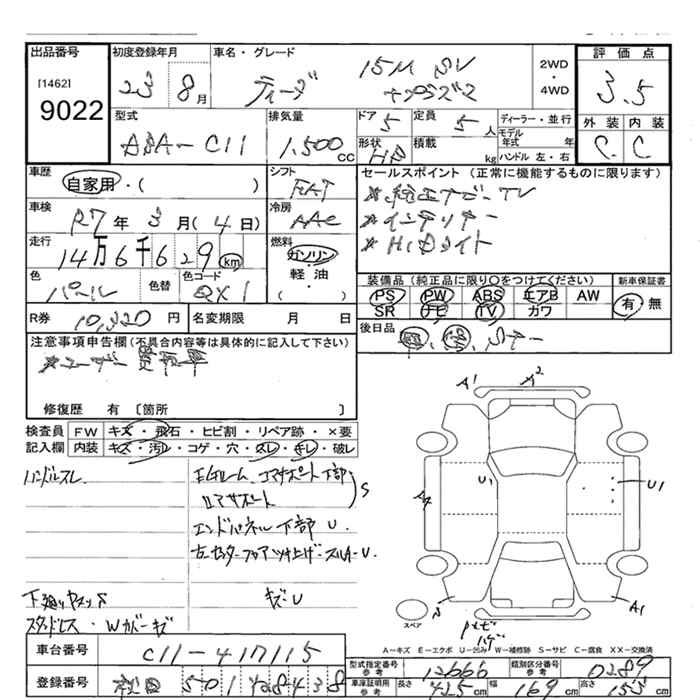 出品番号 初度登録年月 車名・グレード 評価点
[1462]
9022
23 8月 ティーダ 15M SV
2WD・4WD
3.5
型式 排気量 ドア 定員 ディーラー・並行 外装 内装
DBA-C11 1.500cc 5 5人
形状 積載 モデル年式 年
HB kg ハンドル 左・右
C. C
車歴 シフト セールスポイント (正常に機能するものに限ります)
自家用・( ) FAT
車検 冷房
R7年3月(4日) AAC
★インテリキー
★HIDライト
走行 燃料
14万6千629km ガソリン・軽油・( )
装備品 (純正品に限り○をつけてください) 新車保証書
色 色替 色コード
パール QX1
PS PW ABS エアB AW 有・無
SR ナビ TV カワ
R券 10,320円 名変期限 月 日
後日品
注意事項申告欄 (不具合内容等は具体的に記入して下さい)
★ユーザー買取車
修復歴 有 [箇所 ]
検査員 FW キズ・飛石・ヒビ割・リペア跡・×要
記入欄 内装 キズ・汚レ・コゲ・穴・スレ・キレ・破レ
ハンドルスレ
コアサポート下部
S
エンドパネル下部 U
キズ・U
スタッドレス・Wカバーキズ
A1 A2
U1 U1
A4
S A1
ハゲ
スペア
A-キズ E-エクボ U-凹み W-補修跡 S-サビ C-腐食 XX-交換済
車台番号 C11-417115
型式指定番号 参考 12666 類別区分番号 参考 0289
登録番号 501 8438
車庫証明用 参考 長さ 425cm 幅 169cm 高さ cm